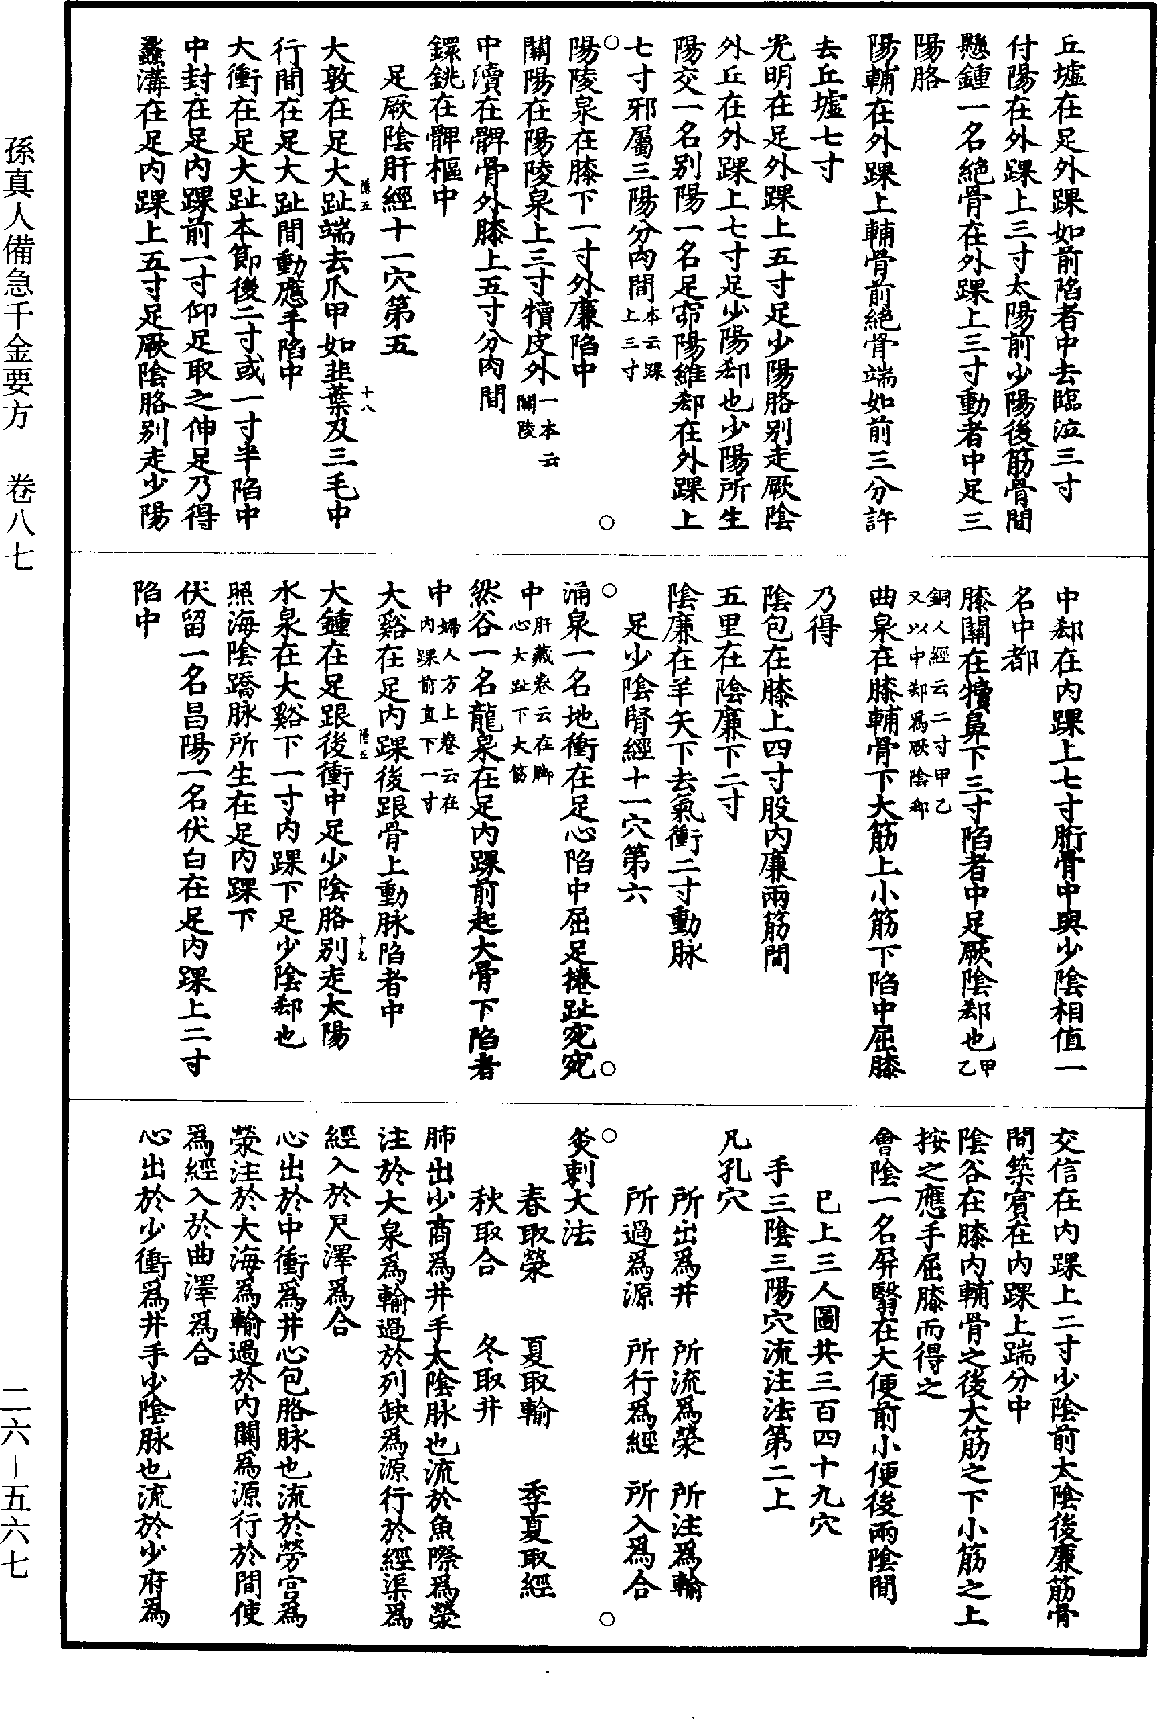 丘墟在足外踝如前陷者中去臨泣三寸
付陽在外踝上三寸太陽前少陽後筋骨間
懸鍾一名絕骨在外踝上三寸動者中足三
陽胳
陽輔在外踝上輔骨前絕骨端如前三分許
去丘墟七寸
光明在足外踝上五寸足少陽胳別走厥陰
外丘在外踝上七寸足少陽郄也少陽所生
陽交一名別陽一名足窌陽維郄在外踝上
七寸邪屬三陽分肉間本云踝上三寸
陽陵泉在膝下一寸外廉陷中
關陽在陽陵泉上三寸犢皮外一本云關陵
中瀆在髀骨外膝上五寸分肉間
鐶銚在髀樞中
足厥陰肝經十一穴第五
大敦在足大趾端去爪甲如韭葉及三毛中
行間在足大趾間動應手陷中
大衝在足大趾本節後二寸或一寸半陷中
中封在足內踝前一寸仰足取之伸足乃得
蠡溝在足內踝上五寸足厥陰胳別走少陽
中郄在內踝上七寸胻骨中與少陰相值一
名中都
膝關在犢鼻下三寸陷者中足厥陰郄也甲乙
銅人經云二寸甲乙又以中郄為厥陰郄
曲泉在膝輔骨下大筋上小筋下陷中屈膝
乃得
陰包在膝上四寸股內廉兩筋間
五里在陰廉下二寸
陰廉在羊矢下去氣衝二寸動脉
足少陰腎經十一穴第六
涌泉一名地衝在足心陷中屈足捲趾宛宛
中肝藏卷云在脚心大趾下大筋
然谷一名龍泉在足內踝前起大骨下陷者
中婦人方上卷云在內踝前直下一寸
大谿在足內踝後跟骨上動脉陷者中
大鍾在足跟後衝中足少陰胳別走太陽
水泉在大谿下一寸內踝下足少陰郄也
照海陰蹻脉所生在足內踝下
伏留一名昌陽一名伏白在足內踝上二寸
陷中
交信在內踝上二寸少陰前太陰後廉筋骨
間築賓在內踝上踹分中
陰谷在膝內輔骨之後大筋之下小筋之上
按之應手屈膝而得之
會陰一名屏翳在大便前小便後兩陰間
已上三人圖共三百四十九穴
手三陰三陽穴流注法第二上
凡孔穴
所出爲井　所流爲滎　所注爲輸
所過爲源　所行爲經　所入爲合
灸刺大法
春取滎　夏取輸　季夏取經
秋取合　冬取井
肺出少商爲井手太陰脉也流於魚際爲滎
注於大泉爲輸過於列缺爲源行於經渠爲
經入於尺澤爲合
心出於中衝爲井心包胳脉也流於勞宮爲
滎注於大海爲輸過於內關爲源行於間使
爲經入於曲澤爲合
心出於少衝爲井手少陰脉也流於少府爲
孫真人備急千金要方　卷八七
二六－五六七